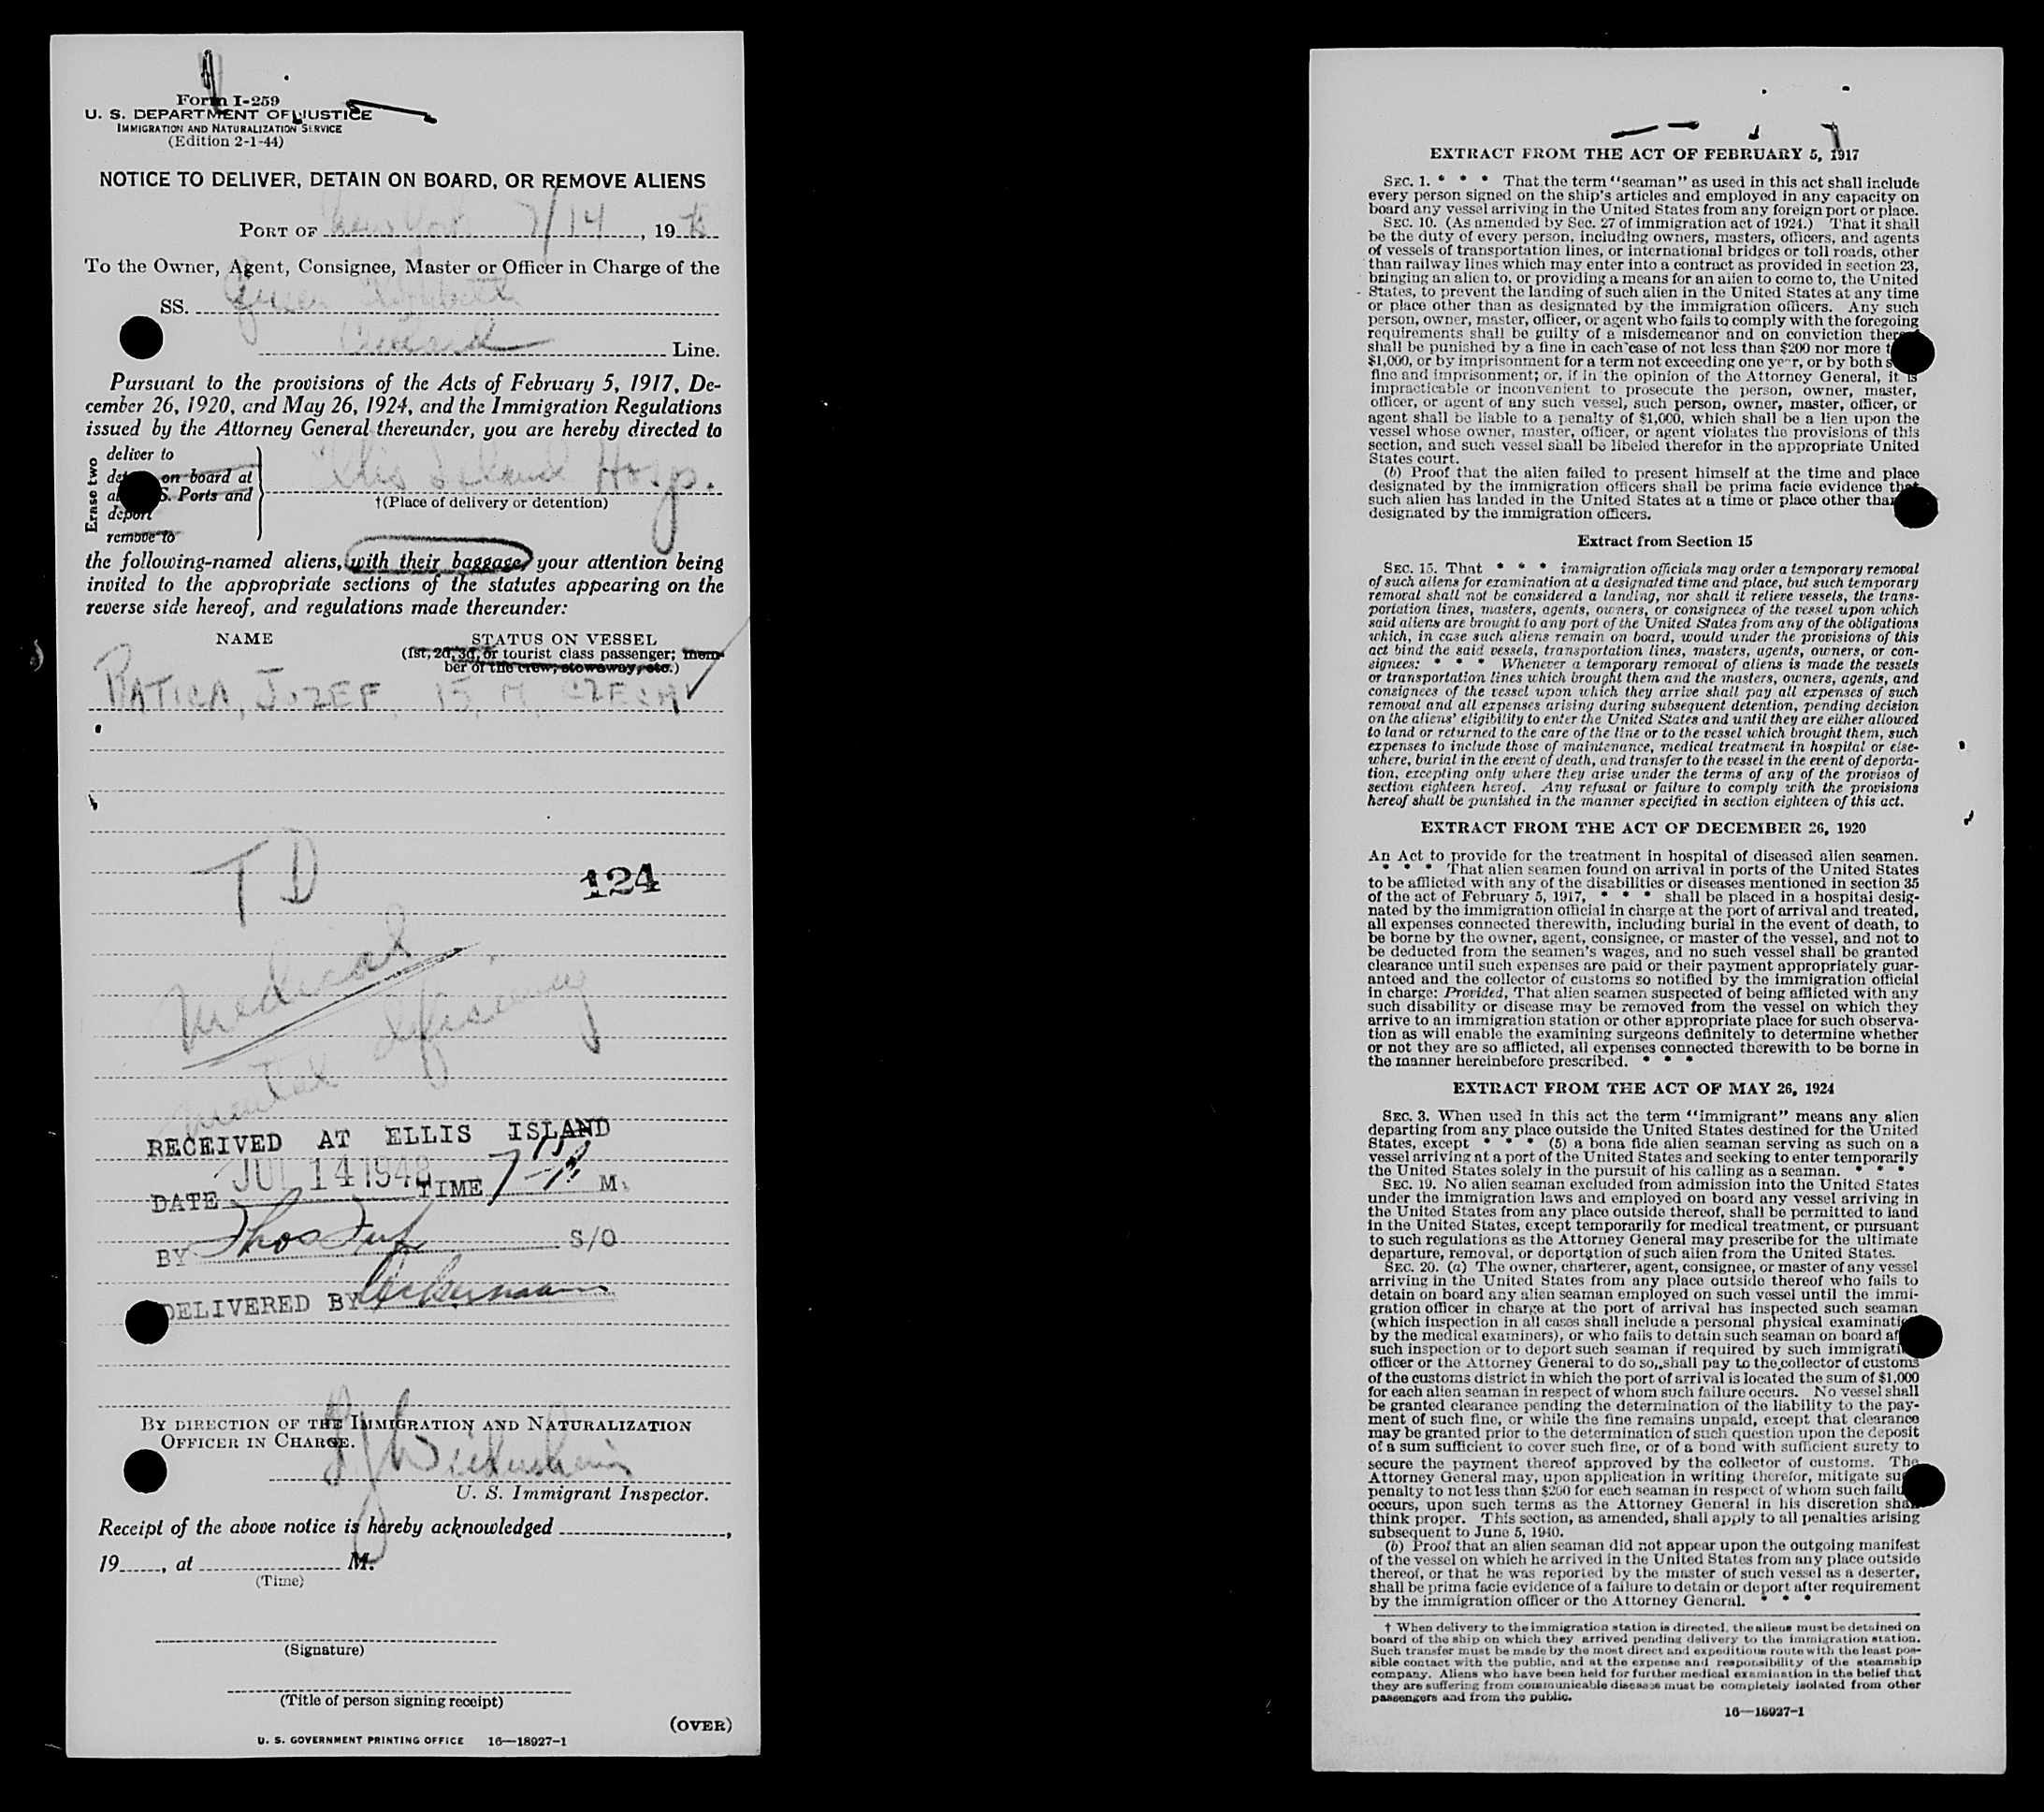 Form I-259
U. S. DEPARTMENT OF JUSTICE
IMMIGRATION AND NATURALIZATION SERVICE
(Edition 2-1-44)
NOTICE TO DELIVER, DETAIN ON BOARD, OR REMOVE ALIENS
PORT OF New York 7/14, 19
To the Owner, Agent, Consignee, Master or Officer in Charge of the
SS. Queen Elizabeth
Cunard Line.
Pursuant to the provisions of the Acts of February 5, 1917, De-
cember 26, 1920, and May 26, 1924, and the Immigration Regulations
issued by the Attorney General thereunder, you are hereby directed to
Erase two
deliver to
on board at
S. Ports and
deport
remove to
Ellis Island Hosp.
†(Place of delivery or detention)
the following-named aliens, with their baggage, your attention being
invited to the appropriate sections of the statutes appearing on the
reverse side hereof, and regulations made thereunder:
NAME STATUS ON VESSEL
(1st, 2d, 3d, or tourist class passenger; mem-
ber of the crew, stowaway, etc.)
RATICA, JOZEF, 15, M, CZECH
T D
124
Medical
Mental deficiency
RECEIVED AT ELLIS ISLAND
DATE JUL 14 1948 TIME 7- M.
BY Thos S/O
DELIVERED BY Ackermann
BY DIRECTION OF THE IMMIGRATION AND NATURALIZATION
OFFICER IN CHARGE.
U. S. Immigrant Inspector.
Receipt of the above notice is hereby acknowledged ,
19 , at M.
(Time)
(Signature)
(Title of person signing receipt)
(OVER)
U. S. GOVERNMENT PRINTING OFFICE 16—18927-1
EXTRACT FROM THE ACT OF FEBRUARY 5, 1917
SEC. 1. * * * That the term "seaman" as used in this act shall include
every person signed on the ship's articles and employed in any capacity on
board any vessel arriving in the United States from any foreign port or place.
SEC. 10. (As amended by Sec. 27 of immigration act of 1924.) That it shall
be the duty of every person, including owners, masters, officers, and agents
of vessels of transportation lines, or international bridges or toll roads, other
than railway lines which may enter into a contract as provided in section 23,
bringing an alien to, or providing a means for an alien to come to, the United
States, to prevent the landing of such alien in the United States at any time
or place other than as designated by the immigration officers. Any such
person, owner, master, officer, or agent who fails to comply with the foregoing
requirements shall be guilty of a misdemeanor and on conviction thereof
shall be punished by a fine in each case of not less than $200 nor more
$1,000, or by imprisonment for a term not exceeding one year, or by both
fine and imprisonment; or, if in the opinion of the Attorney General, it is
impracticable or inconvenient to prosecute the person, owner, master,
officer, or agent of any such vessel, such person, owner, master, officer, or
agent shall be liable to a penalty of $1,000, which shall be a lien upon the
vessel whose owner, master, officer, or agent violates the provisions of this
section, and such vessel shall be libeled therefor in the appropriate United
States court.
(b) Proof that the alien failed to present himself at the time and place
designated by the immigration officers shall be prima facie evidence that
such alien has landed in the United States at a time or place other than
designated by the immigration officers.
Extract from Section 15
SEC. 15. That * * * immigration officials may order a temporary removal
of such aliens for examination at a designated time and place, but such temporary
removal shall not be considered a landing, nor shall it relieve vessels, the trans-
portation lines, masters, agents, owners, or consignees of the vessel upon which
said aliens are brought to any port of the United States from any of the obligations
which, in case such aliens remain on board, would under the provisions of this
act bind the said vessels, transportation lines, masters, agents, owners, or con-
signees: * * * Whenever a temporary removal of aliens is made the vessels
or transportation lines which brought them and the masters, owners, agents, and
consignees of the vessel upon which they arrive shall pay all expenses of such
removal and all expenses arising during subsequent detention, pending decision
on the aliens' eligibility to enter the United States and until they are either allowed
to land or returned to the care of the line or to the vessel which brought them, such
expenses to include those of maintenance, medical treatment in hospital or else-
where, burial in the event of death, and transfer to the vessel in the event of deporta-
tion, excepting only where they arise under the terms of any of the provisos of
section eighteen hereof. Any refusal or failure to comply with the provisions
hereof shall be punished in the manner specified in section eighteen of this act.
EXTRACT FROM THE ACT OF DECEMBER 26, 1920
An Act to provide for the treatment in hospital of diseased alien seamen.
* * * That alien seamen found on arrival in ports of the United States
to be afflicted with any of the disabilities or diseases mentioned in section 35
of the act of February 5, 1917, * * * shall be placed in a hospital desig-
nated by the immigration official in charge at the port of arrival and treated,
all expenses connected therewith, including burial in the event of death, to
be borne by the owner, agent, consignee, or master of the vessel, and not to
be deducted from the seamen's wages, and no such vessel shall be granted
clearance until such expenses are paid or their payment appropriately guar-
anteed and the collector of customs so notified by the immigration official
in charge: Provided, That alien seamen suspected of being afflicted with any
such disability or disease may be removed from the vessel on which they
arrive to an immigration station or other appropriate place for such observa-
tion as will enable the examining surgeons definitely to determine whether
or not they are so afflicted, all expenses connected therewith to be borne in
the manner hereinbefore prescribed. * * *
EXTRACT FROM THE ACT OF MAY 26, 1924
SEC. 3. When used in this act the term "immigrant" means any alien
departing from any place outside the United States destined for the United
States, except * * * (5) a bona fide alien seaman serving as such on a
vessel arriving at a port of the United States and seeking to enter temporarily
the United States solely in the pursuit of his calling as a seaman. * * *
SEC. 19. No alien seaman excluded from admission into the United States
under the immigration laws and employed on board any vessel arriving in
the United States from any place outside thereof, shall be permitted to land
in the United States, except temporarily for medical treatment, or pursuant
to such regulations as the Attorney General may prescribe for the ultimate
departure, removal, or deportation of such alien from the United States.
SEC. 20. (a) The owner, charterer, agent, consignee, or master of any vessel
arriving in the United States from any place outside thereof who fails to
detain on board any alien seaman employed on such vessel until the immi-
gration officer in charge at the port of arrival has inspected such seaman
(which inspection in all cases shall include a personal physical examination
by the medical examiners), or who fails to detain such seaman on board
such inspection or to deport such seaman if required by such immigration
officer or the Attorney General to do so, shall pay to the collector of customs
of the customs district in which the port of arrival is located the sum of $1,000
for each alien seaman in respect of whom such failure occurs. No vessel shall
be granted clearance pending the determination of the liability to the pay-
ment of such fine, or while the fine remains unpaid, except that clearance
may be granted prior to the determination of such question upon the deposit
of a sum sufficient to cover such fine, or of a bond with sufficient surety to
secure the payment thereof approved by the collector of customs. The
Attorney General may, upon application in writing therefor, mitigate such
penalty to not less than $200 for each seaman in respect of whom such failure
occurs, upon such terms as the Attorney General in his discretion shall
think proper. This section, as amended, shall apply to all penalties arising
subsequent to June 5, 1940.
(b) Proof that an alien seaman did not appear upon the outgoing manifest
of the vessel on which he arrived in the United States from any place outside
thereof, or that he was reported by the master of such vessel as a deserter,
shall be prima facie evidence of a failure to detain or deport after requirement
by the immigration officer or the Attorney General. * * *
† When delivery to the immigration station is directed, the aliens must be detained on
board of the ship on which they arrived pending delivery to the immigration station.
Such transfer must be made by the most direct and expeditious route with the least pos-
sible contact with the public, and at the expense and responsibility of the steamship
company. Aliens who have been held for further medical examination in the belief that
they are suffering from communicable diseases must be completely isolated from other
passengers and from the public.
16—18927-1